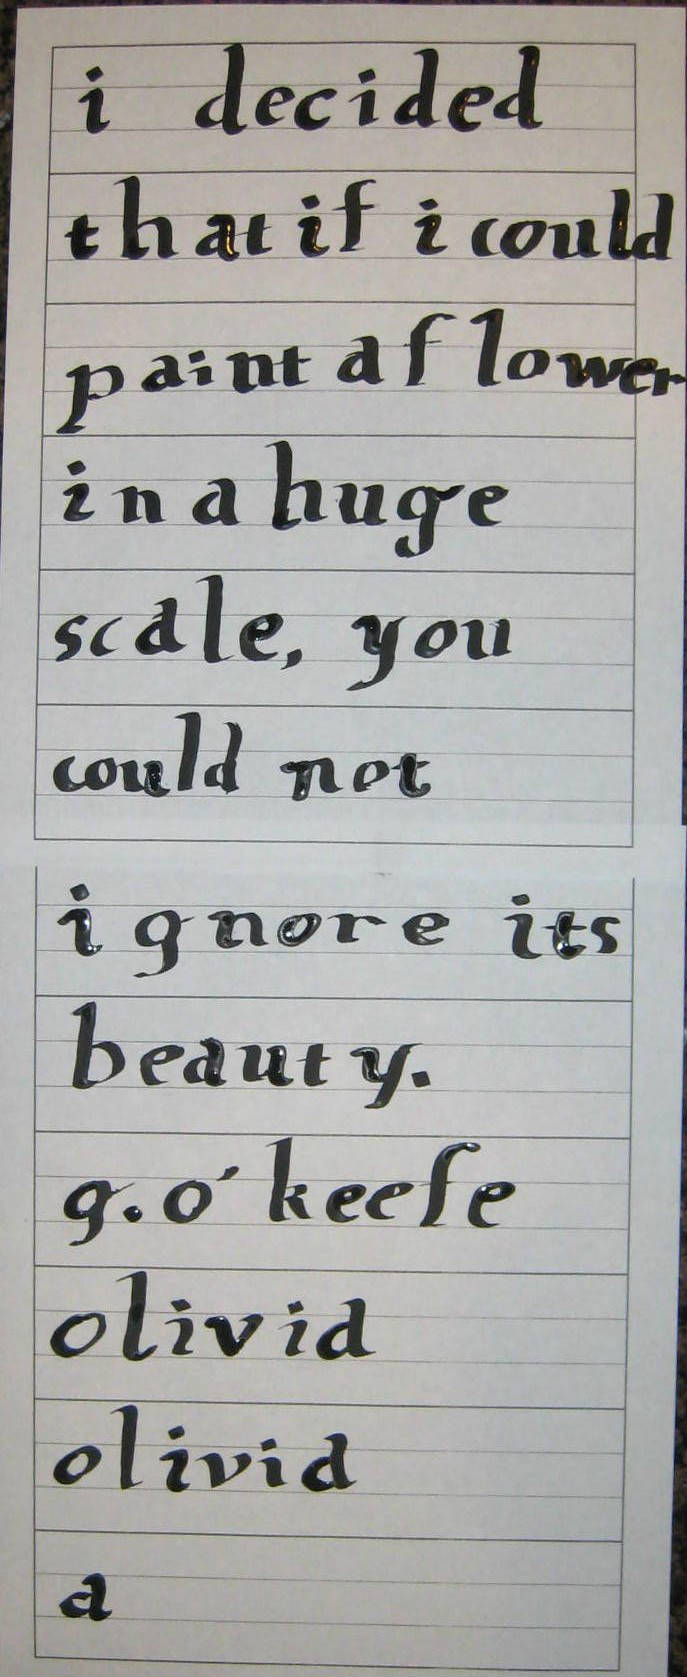 i decided
that if i could
paint a flower
in a huge
scale, you
could not
ignore its
beauty.
g. o'keefe
olivia
olivia
a